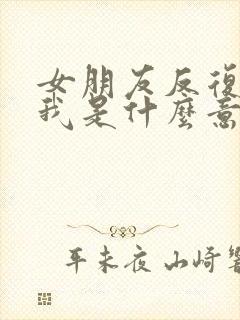 女朋友反復
我是什麼意
平未夜 山崎響